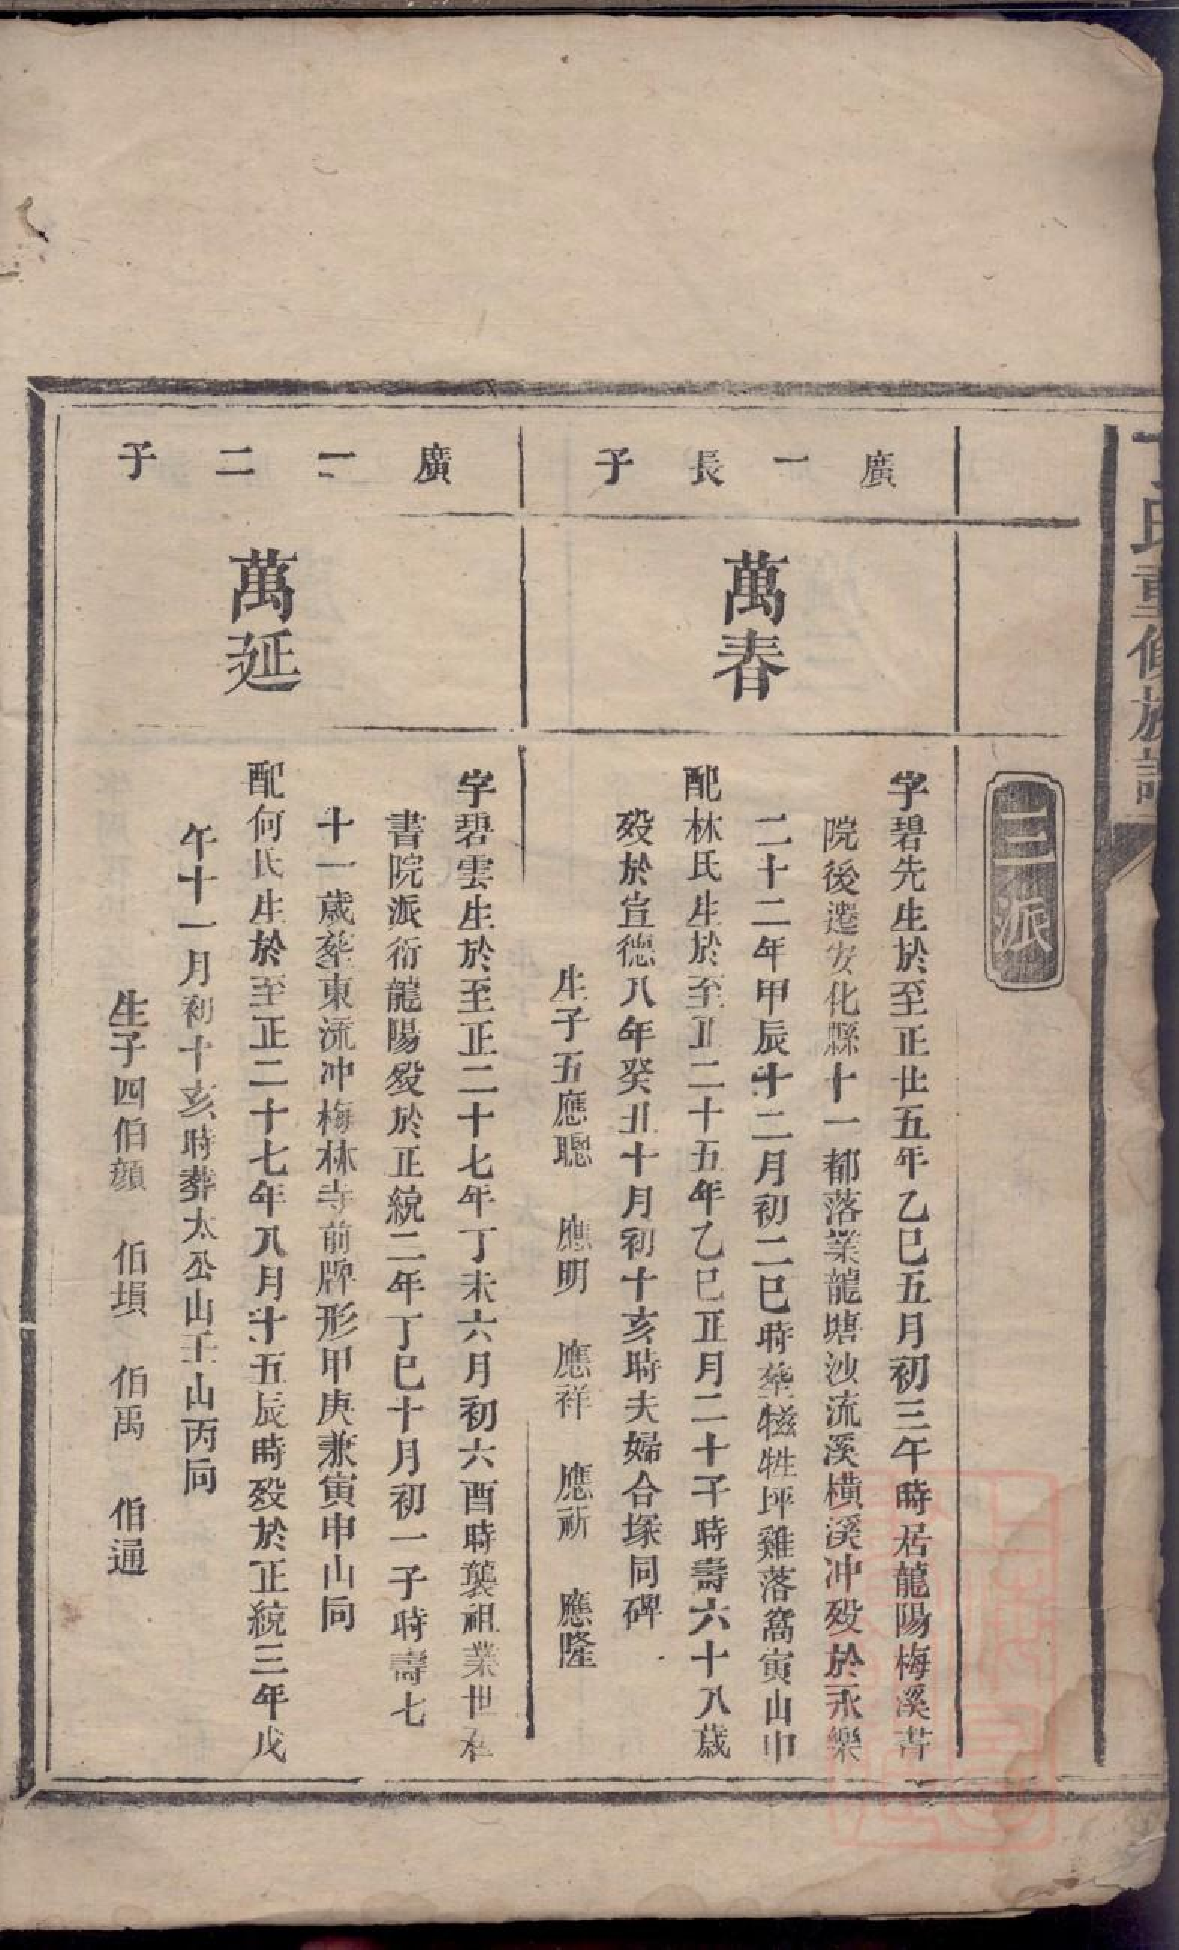 氏重修族譜
三派
廣一長子
萬春
字碧先生於至正廿五年乙巳五月初三午時居龍陽梅溪書
院後遷安化縣十一都落業龍塘沙流溪橫溪冲殁於永樂
二十二年甲辰十二月初二巳時塟犠牲坪雞落窩寅山申
配林氏生於至正二十五年乙巳正月二十子時壽六十八歲
殁於宣德八年癸丑十月初十亥時夫婦合塚同碑
生子五應聰 應明 應祥 應祈 應隆
廣一二子
萬延
字碧雲生於至正二十七年丁未六月初六酉時襲祖業世私
書院派衍龍陽殁於正統二年丁巳十月初一子時壽七
十一歲塟東流冲梅林寺前牌形甲庚兼寅申山向
配何氏生於至正二十七年八月十五辰時殁於正統三年戊
午十一月初十亥時葬太公山壬山丙向
生子四伯顔 伯塤 伯禹 伯通